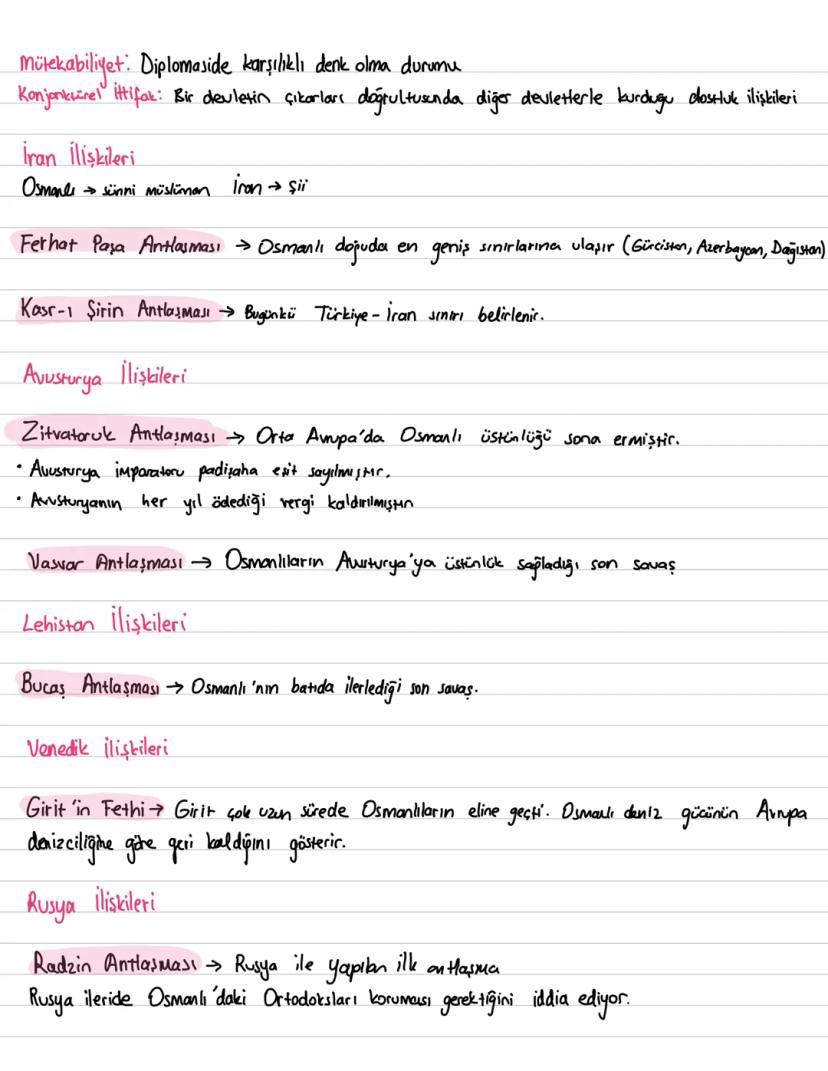 Mütekabiliyet: Diplomaside karşılıklı denk olma durumu
Konjonktürel İttifak: Bir devletin çıkarları doğrultusunda diğer devletlerle kurduğu dostluk ilişkileri
İran İlişkileri
Osmanlı → sünni müslüman İran → Şii
Ferhat Paşa Antlaşması → Osmanlı doğuda en geniş sınırlarına ulaşır (Gürcistan, Azerbaycan, Dağıstan)
Kasr-ı Şirin Antlaşması → Bugünkü Türkiye - İran sınırı belirlenir.
Avusturya İlişkileri
Zitvatoruk Antlaşması → Orta Avrupa'da Osmanlı üstünlüğü sona ermiştir.
• Avusturya imparatoru padişaha eşit sayılmıştır.
• Avusturyanın her yıl ödediği vergi kaldırılmıştır
Vasvar Antlaşması → Osmanlıların Avusturya'ya üstünlük sağladığı son savaş
Lehistan İlişkileri
Bucaş Antlaşması → Osmanlı'nın batıda ilerlediği son savaş.
Venedik ilişkileri
Girit'in Fethi → Girit çok uzun sürede Osmanlıların eline geçti. Osmanlı deniz gücünün Avrupa
denizciliğine göre geri kaldığını gösterir.
Rusya İlişkileri
Radzin Antlaşması → Rusya ile yapılan ilk antlaşma
Rusya ileride Osmanlı'daki Ortodoksları koruması gerektiğini iddia ediyor.